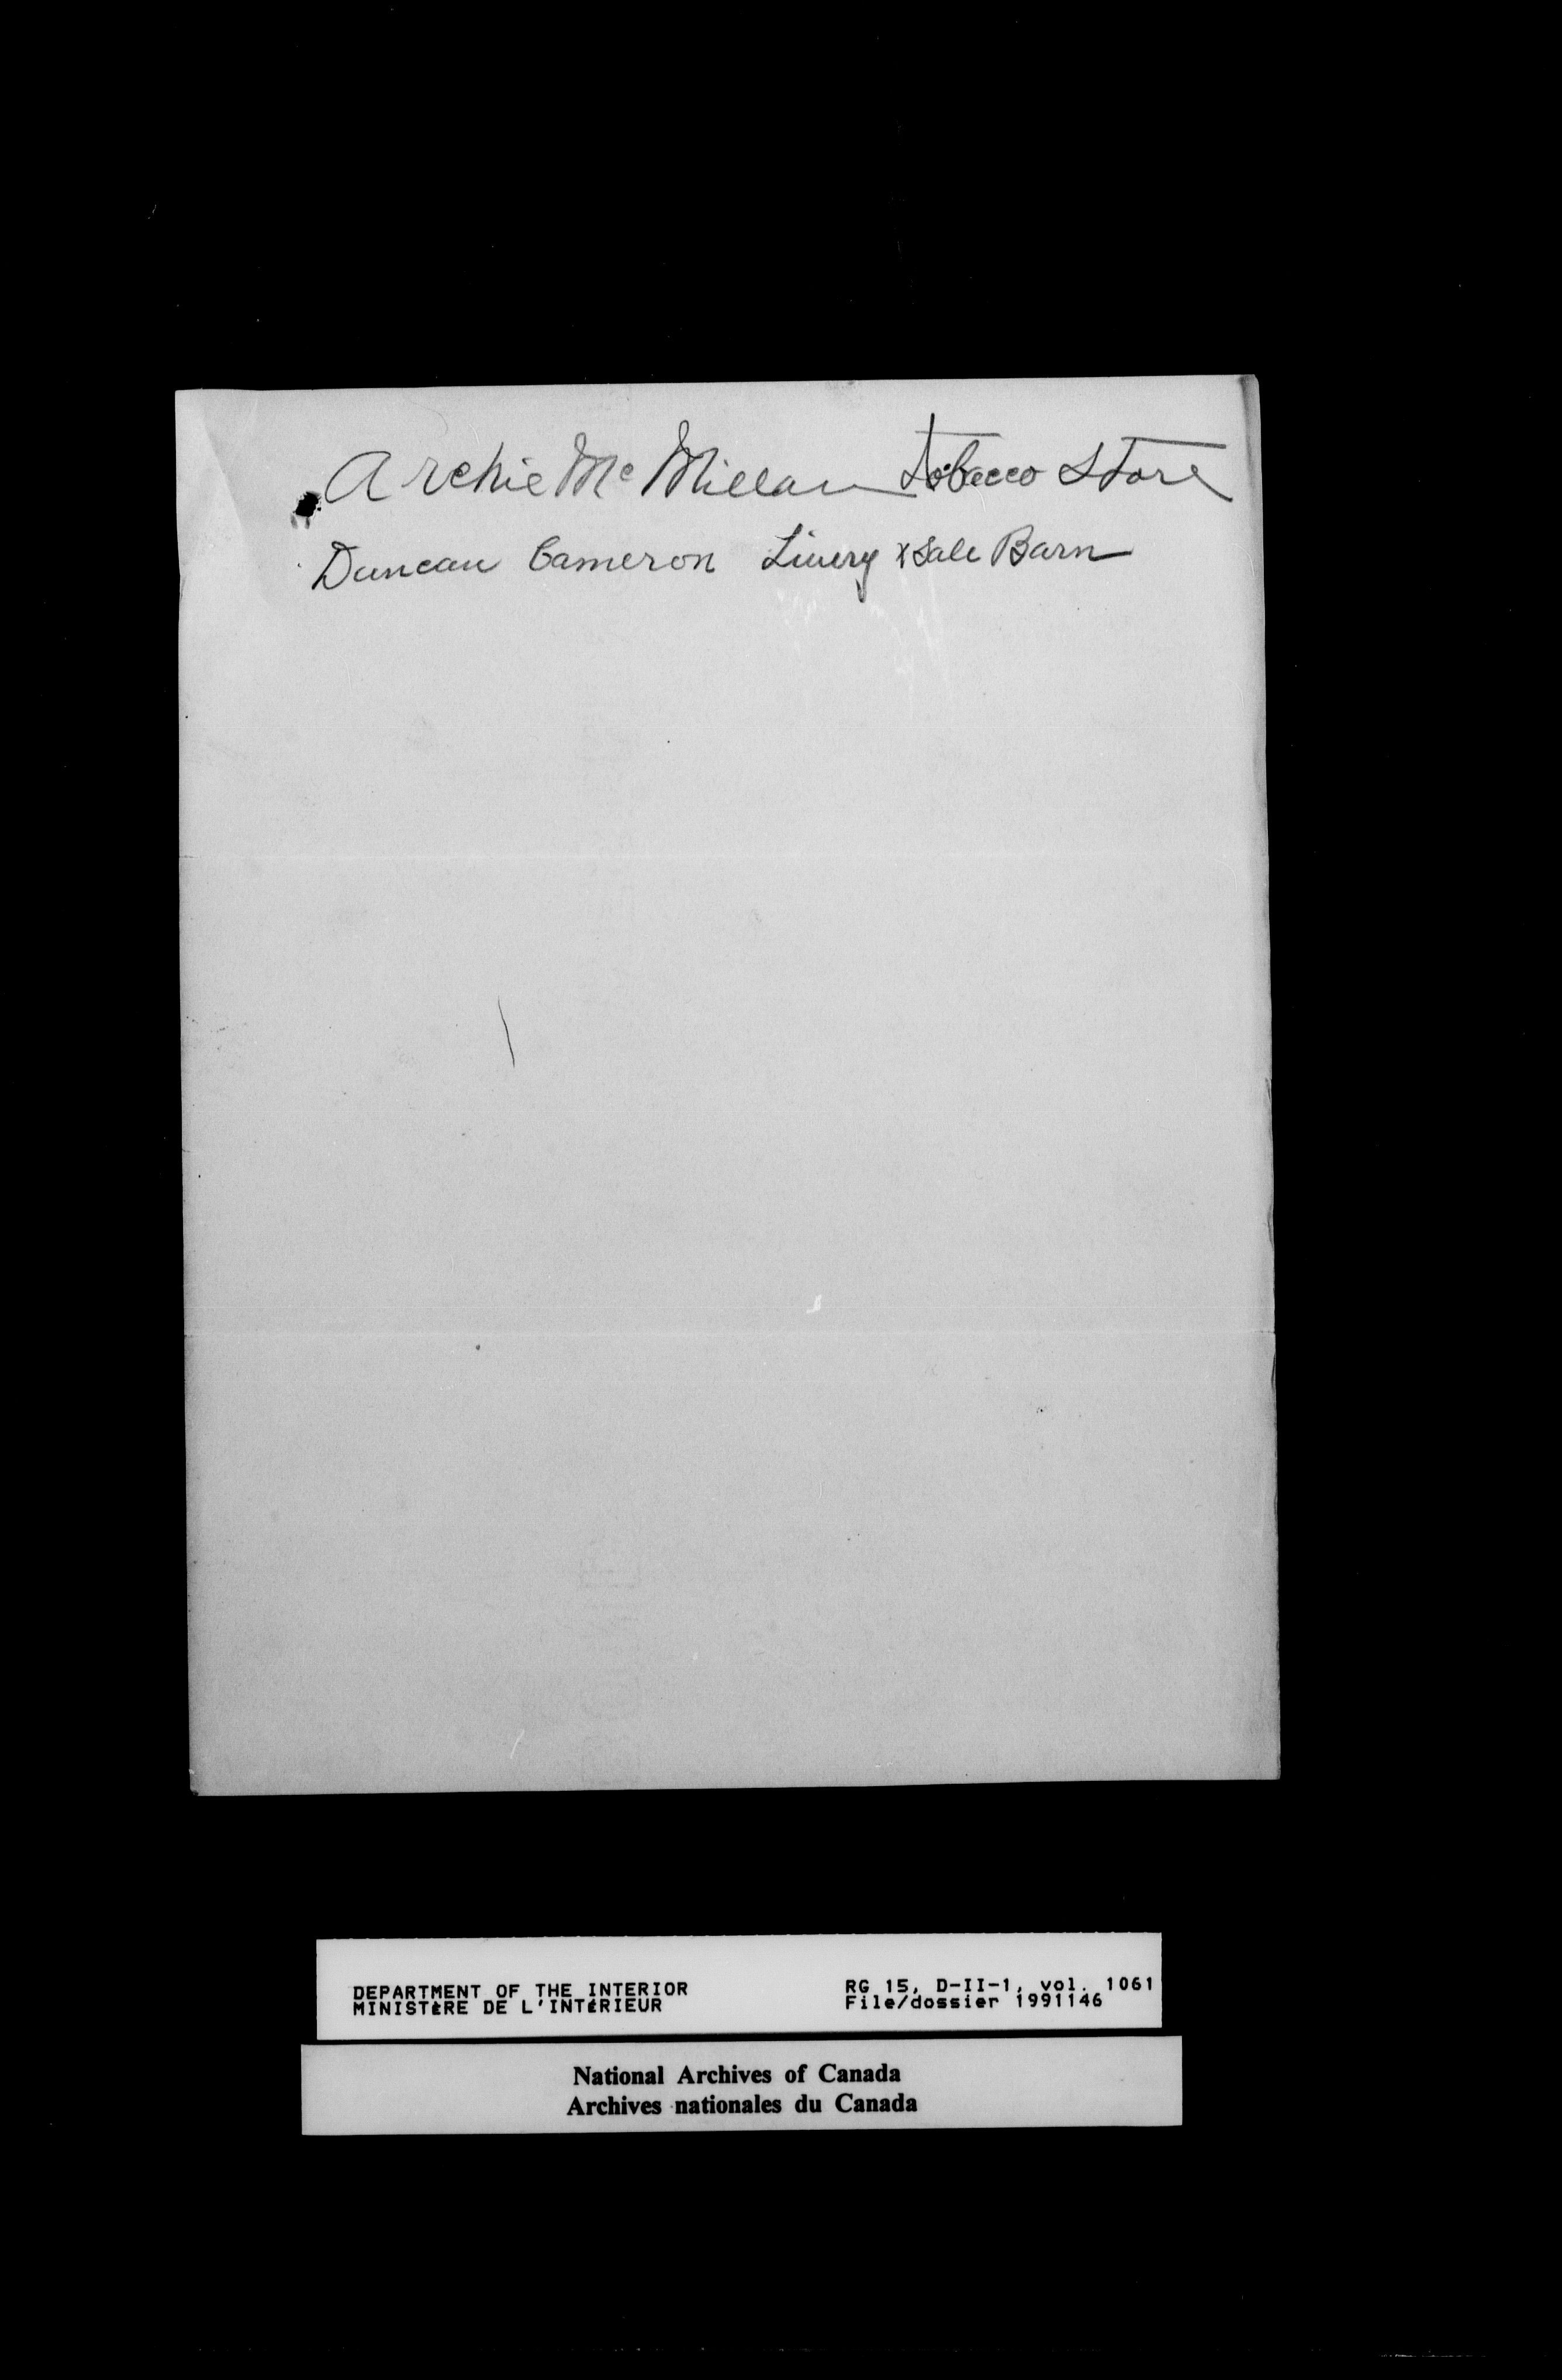 Archie McMillan Tobacco Store
Duncan Cameron Livery & Sale Barn
DEPARTMENT OF THE INTERIOR
MINISTÈRE DE L'INTÉRIEUR
RG 15, D-II-1, vol. 1061
File/dossier 1991146
National Archives of Canada
Archives nationales du Canada